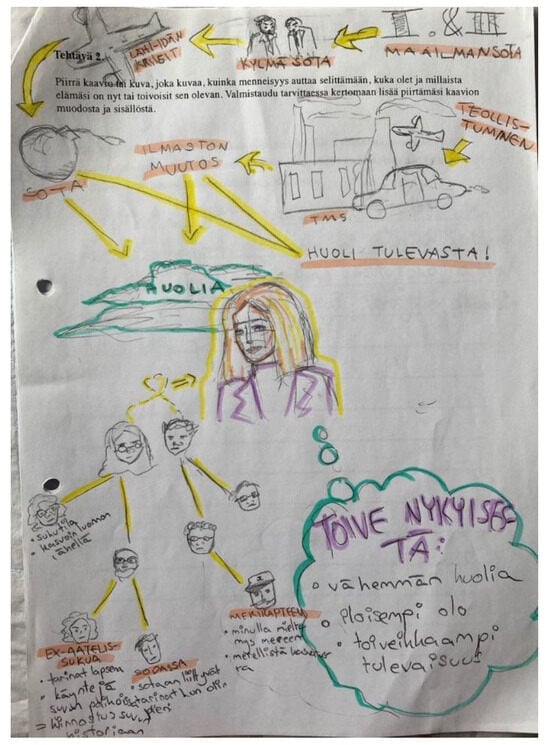 I. & II
MAAILMANSOTA
KYLMÄ SOTA
LÄHI-IDÄN
KRIISIT
Tehtävä 2.
Piirrä kaavio tai kuva, joka kuvaa, kuinka menneisyys auttaa selittämään, kuka olet ja millaista
elämäsi on nyt tai toivoisit sen olevan. Valmistaudu tarvittaessa kertomaan lisää piirtämäsi kaavion
muodosta ja sisällöstä.
TEOLLIS-
TUMINEN
ILMASTON
MUUTOS
SOTA
TMS
HUOLI TULEVASTA!
HUOLIA
• sukutila
• kasvoin luonnon
lähellä
TOIVE NYKYISES-
TÄ:
• vähemmän huolia
• iloisempi olo
• toiveikkaampi
tulevaisuus
MERIKAPTEENI
• minulla mielty-
mys mereen
EX-AATELIS-
SUKUA
• tarinat lapsena
• käyntejä
suvun
= kiinnostus suvun
historiaan
SODASSA
• sotaan liittyvät
tarinat kun olin
pieni